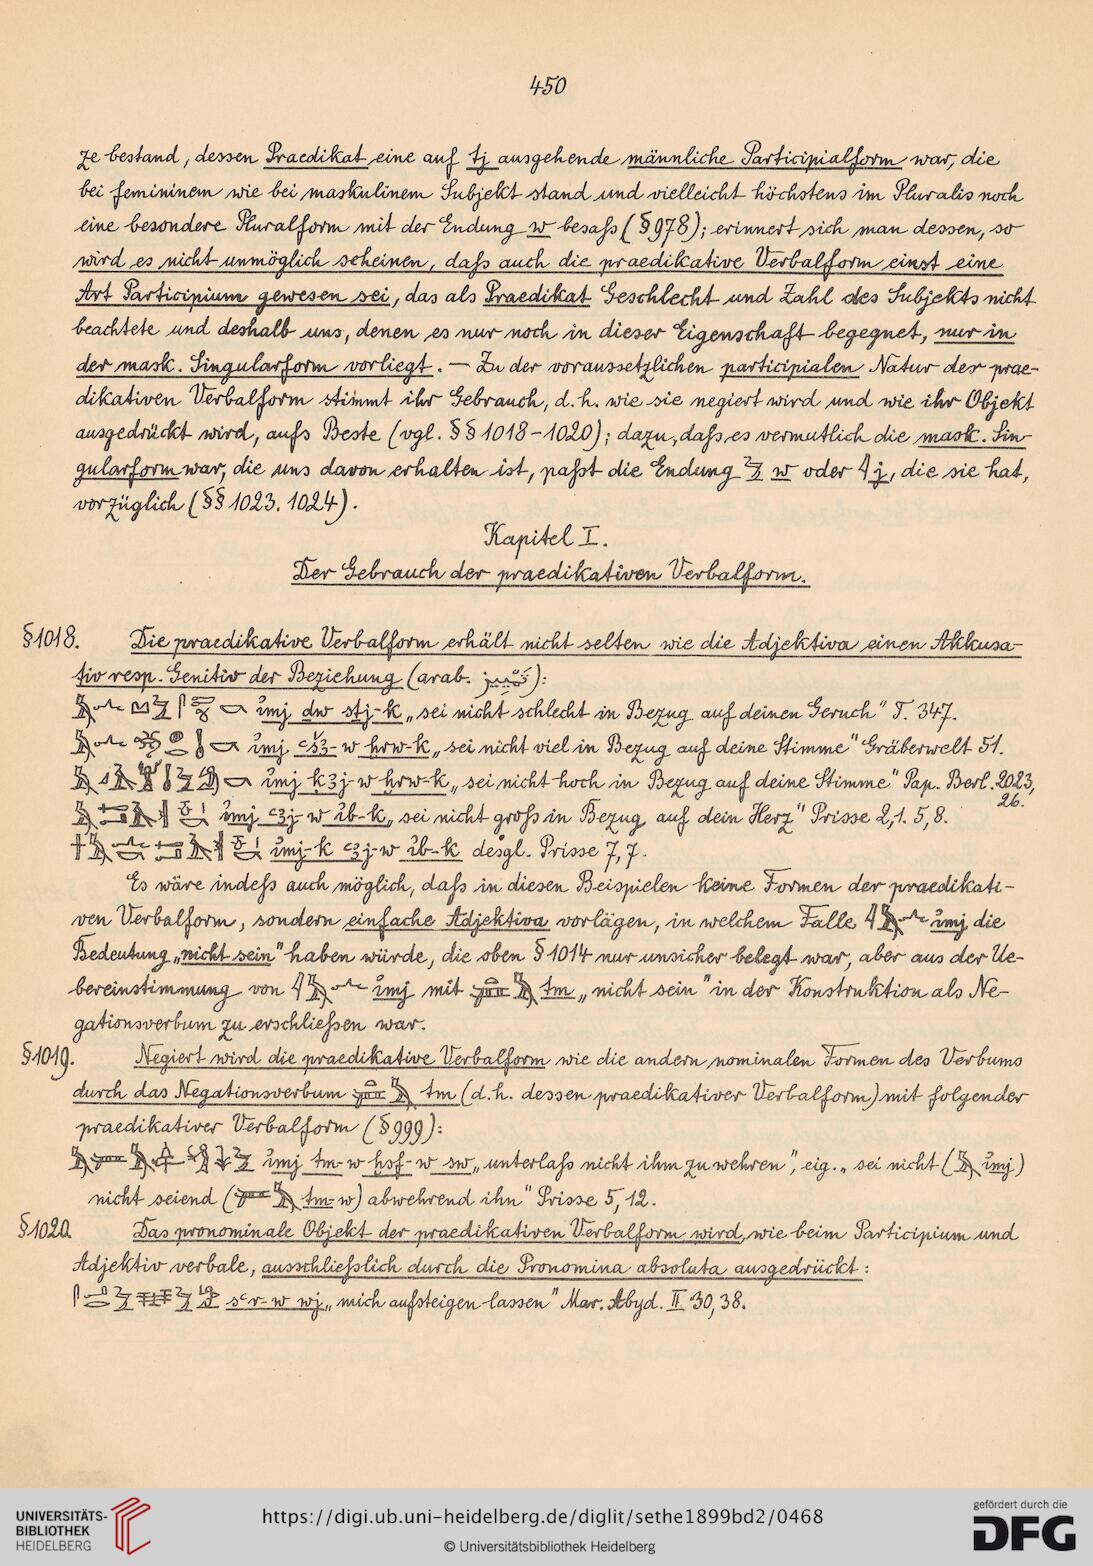 450
ze bestand, dessen Praedikat eine auf tj ausgehende männliche Participialform war, die
bei femininem wie bei maskulinem Subjekt stand und vielleicht höchstens im Pluralis noch
eine besondere Pluralform mit der Endung w besaß (§978); erinnert sich man dessen, so
wird es nicht unmöglich scheinen, daß auch die praedikative Verbalform einst eine
Art Participium gewesen sei, das als Praedikat Geschlecht und Zahl des Subjekts nicht
beachtete und deshalb uns, denen es nur noch in dieser Eigenschaft begegnet, nur in
der mask. Singularform vorliegt. — Zu der voraussetzlichen participialen Natur der prae-
dikativen Verbalform stimmt ihr Gebrauch, d. h. wie sie negiert wird und wie ihr Objekt
ausgedrückt wird, aufs Beste (vgl. §§ 1018-1020); dazu, daß es vermutlich die mask. Sin-
gularform war, die uns davon erhalten ist, paßt die Endung 𓅱 w oder 𓇋 j, die sie hat,
vorzüglich (§§ 1023. 1024).
Kapitel I.
Der Gebrauch der praedikativen Verbalform.
§1018. Die praedikative Verbalform erhält nicht selten wie die Adjektiva einen Akkusa-
tiv resp. Genitiv der Beziehung (arab. تمييز):
ỉmj dw stj-k „sei nicht schlecht in Bezug auf deinen Geruch" T. 347.
ỉmj ꜥšꜣ-w ḫrw-k „sei nicht viel in Bezug auf deine Stimme" Gräberwelt 51.
ỉmj ḳꜣj-w ḫrw-k „sei nicht hoch in Bezug auf deine Stimme" Pap. Berl. 2023,
26.
ỉmj ꜥꜣj-w ỉb-k „sei nicht groß in Bezug auf dein Herz" Prisse 2,1. 5,8.
ỉmj-k ꜥꜣj-w ỉb-k desgl. Prisse 7,7.
Es wäre indeß auch möglich, daß in diesen Beispielen keine Formen der praedikati-
ven Verbalform, sondern einfache Adjektiva vorlägen, in welchem Falle ỉmj die
Bedeutung „nicht sein" haben würde, die oben §1014 nur unsicher belegt war, aber aus der Ue-
bereinstimmung von ỉmj mit tm „nicht sein" in der Konstruktion als Ne-
gationsverbum zu erschließen war.
§1019. Negiert wird die praedikative Verbalform wie die andern nominalen Formen des Verbums
durch das Negationsverbum tm (d. h. dessen praedikativer Verbalform) mit folgender
praedikativer Verbalform (§999):
ỉmj tm-w ḫsf-w sw „unterlaß nicht ihm zu wehren", eig. „sei nicht (ỉmj)
nicht seiend (tm-w) abwehrend ihn" Prisse 5,12.
§1020. Das pronominale Objekt der praedikativen Verbalform wird, wie beim Participium und
Adjektiv verbale, ausschließlich durch die Pronomina absoluta ausgedrückt:
sꜥr-w wj „mich aufsteigen lassen" Mar. Abyd. II 30,38.
UNIVERSITÄTS-
BIBLIOTHEK
HEIDELBERG
https://digi.ub.uni-heidelberg.de/diglit/sethe1899bd2/0468
© Universitätsbibliothek Heidelberg
gefördert durch die
DFG